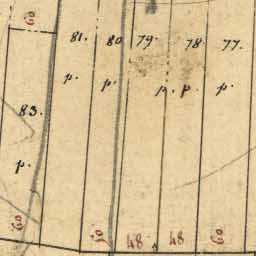 60
81. 80 79. 78 77.
p. p. p. p. p.
83.
p.
60 60 48 48 60